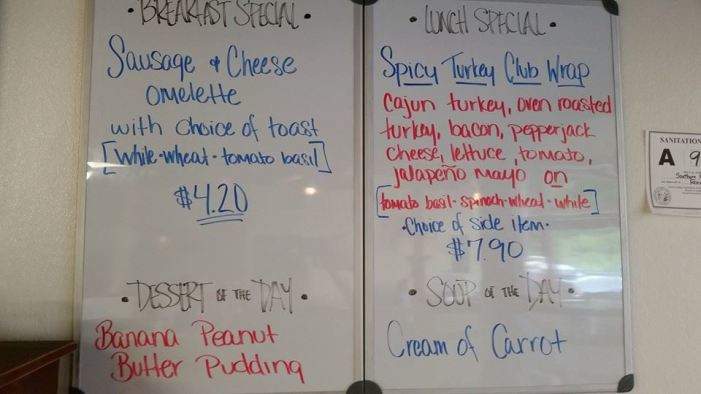 • BREAKFAST SPECIAL •
Sausage & Cheese
Omelette
with choice of toast
[White-wheat-tomato basil]
$4.20
• DESSERT OF THE DAY •
Banana Peanut
Butter Pudding
• LUNCH SPECIAL •
Spicy Turkey Club Wrap
Cajun turkey, oven roasted
turkey, bacon, pepperjack
cheese, lettuce, tomato,
jalapeño mayo on
[tomato basil-spinach-wheat-white]
·Choice of side item·
$7.90
• SOUP OF THE DAY •
Cream of Carrot
SANITATION
A 9